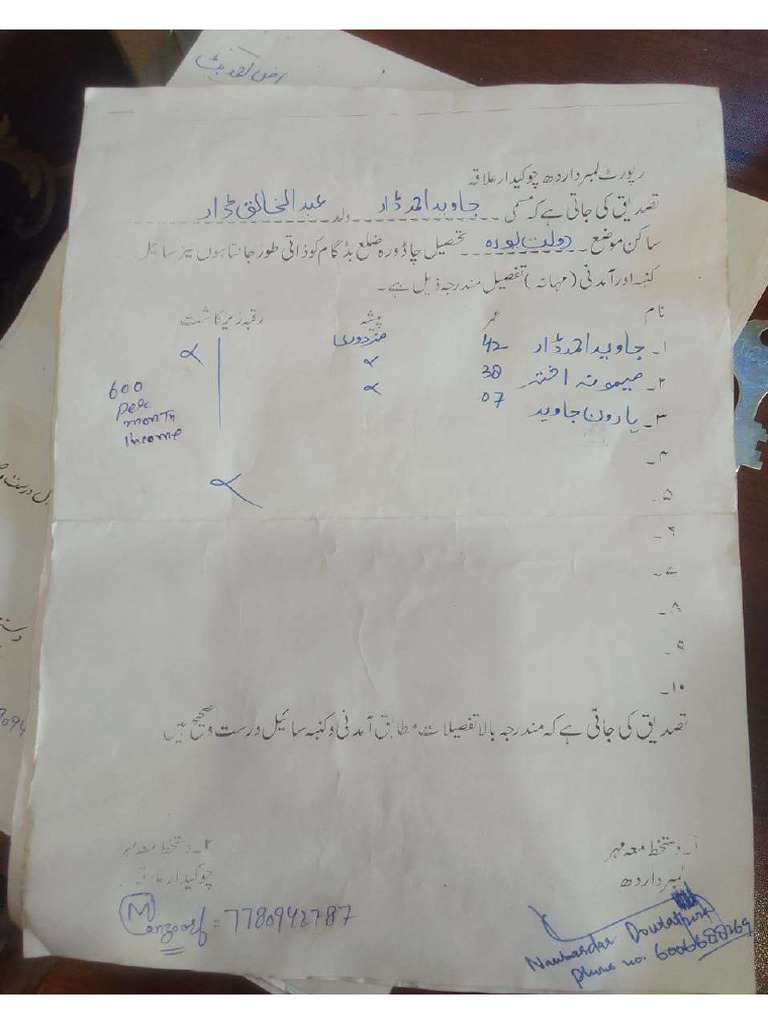 رپورٹ لمبرداردھ چوکیدار علاقہ
تصدیق کی جاتی ہے کہ مسمی جاوید احمد ڈار ولد عبدالخالق ڈار
ساکن موضع دولت پورہ تحصیل چاڈورہ ضلع بڈگام کو ذاتی طور جانتا ہوں نیز سائیل
کنبہ اور آمدنی (مہانہ) تفصیل مندرجہ ذیل ہے۔
نام عمر پیشہ رقبہ زیر کاشت
۱۔ جاوید احمد ڈار 42 مزدوری
۲۔ میمونہ اختر 38
۳۔ ہارون جاوید 07
600
per
month
income
۴۔
۵۔
۶۔
۷۔
۸۔
۹۔
۱۰۔
تصدیق کی جاتی ہے کہ مندرجہ بالا تفصیلات مطابق آمدنی و کنبہ سائیل درست و صحیح ہیں
۱۔ دستخط معہ مہر ۲۔ دستخط معہ مہر
لمبرداردھ چوکیدار علاقہ
Manzoor = 7780942787
Nambardar Doulatpora
phone no. 6006688269